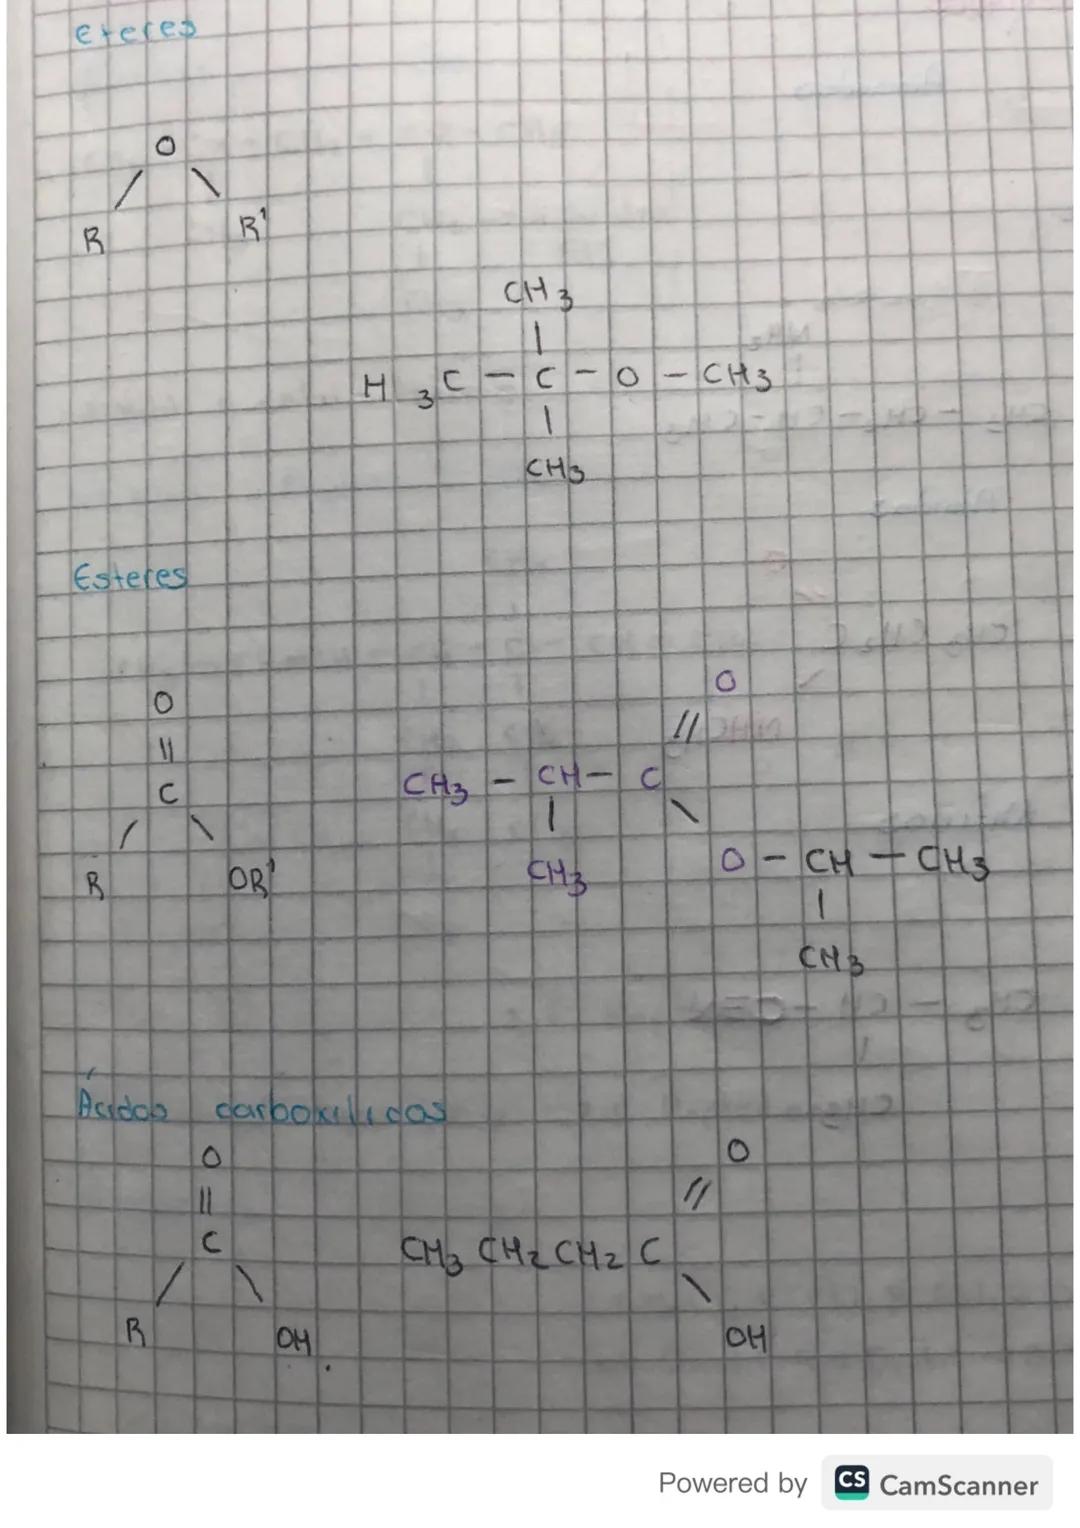 eteres
O
/ \
R R'
CH3
|
H3C - C - O - CH3
|
CH3
Esteres
O
||
C
/ \
R OR'
O
//
CH3 - CH - C
| \
CH3 O - CH - CH3
|
CH3
Ácidos carboxilicos
O
||
C
/ \
R OH
O
//
CH3 CH2 CH2 C
\
OH
Powered by CS CamScanner